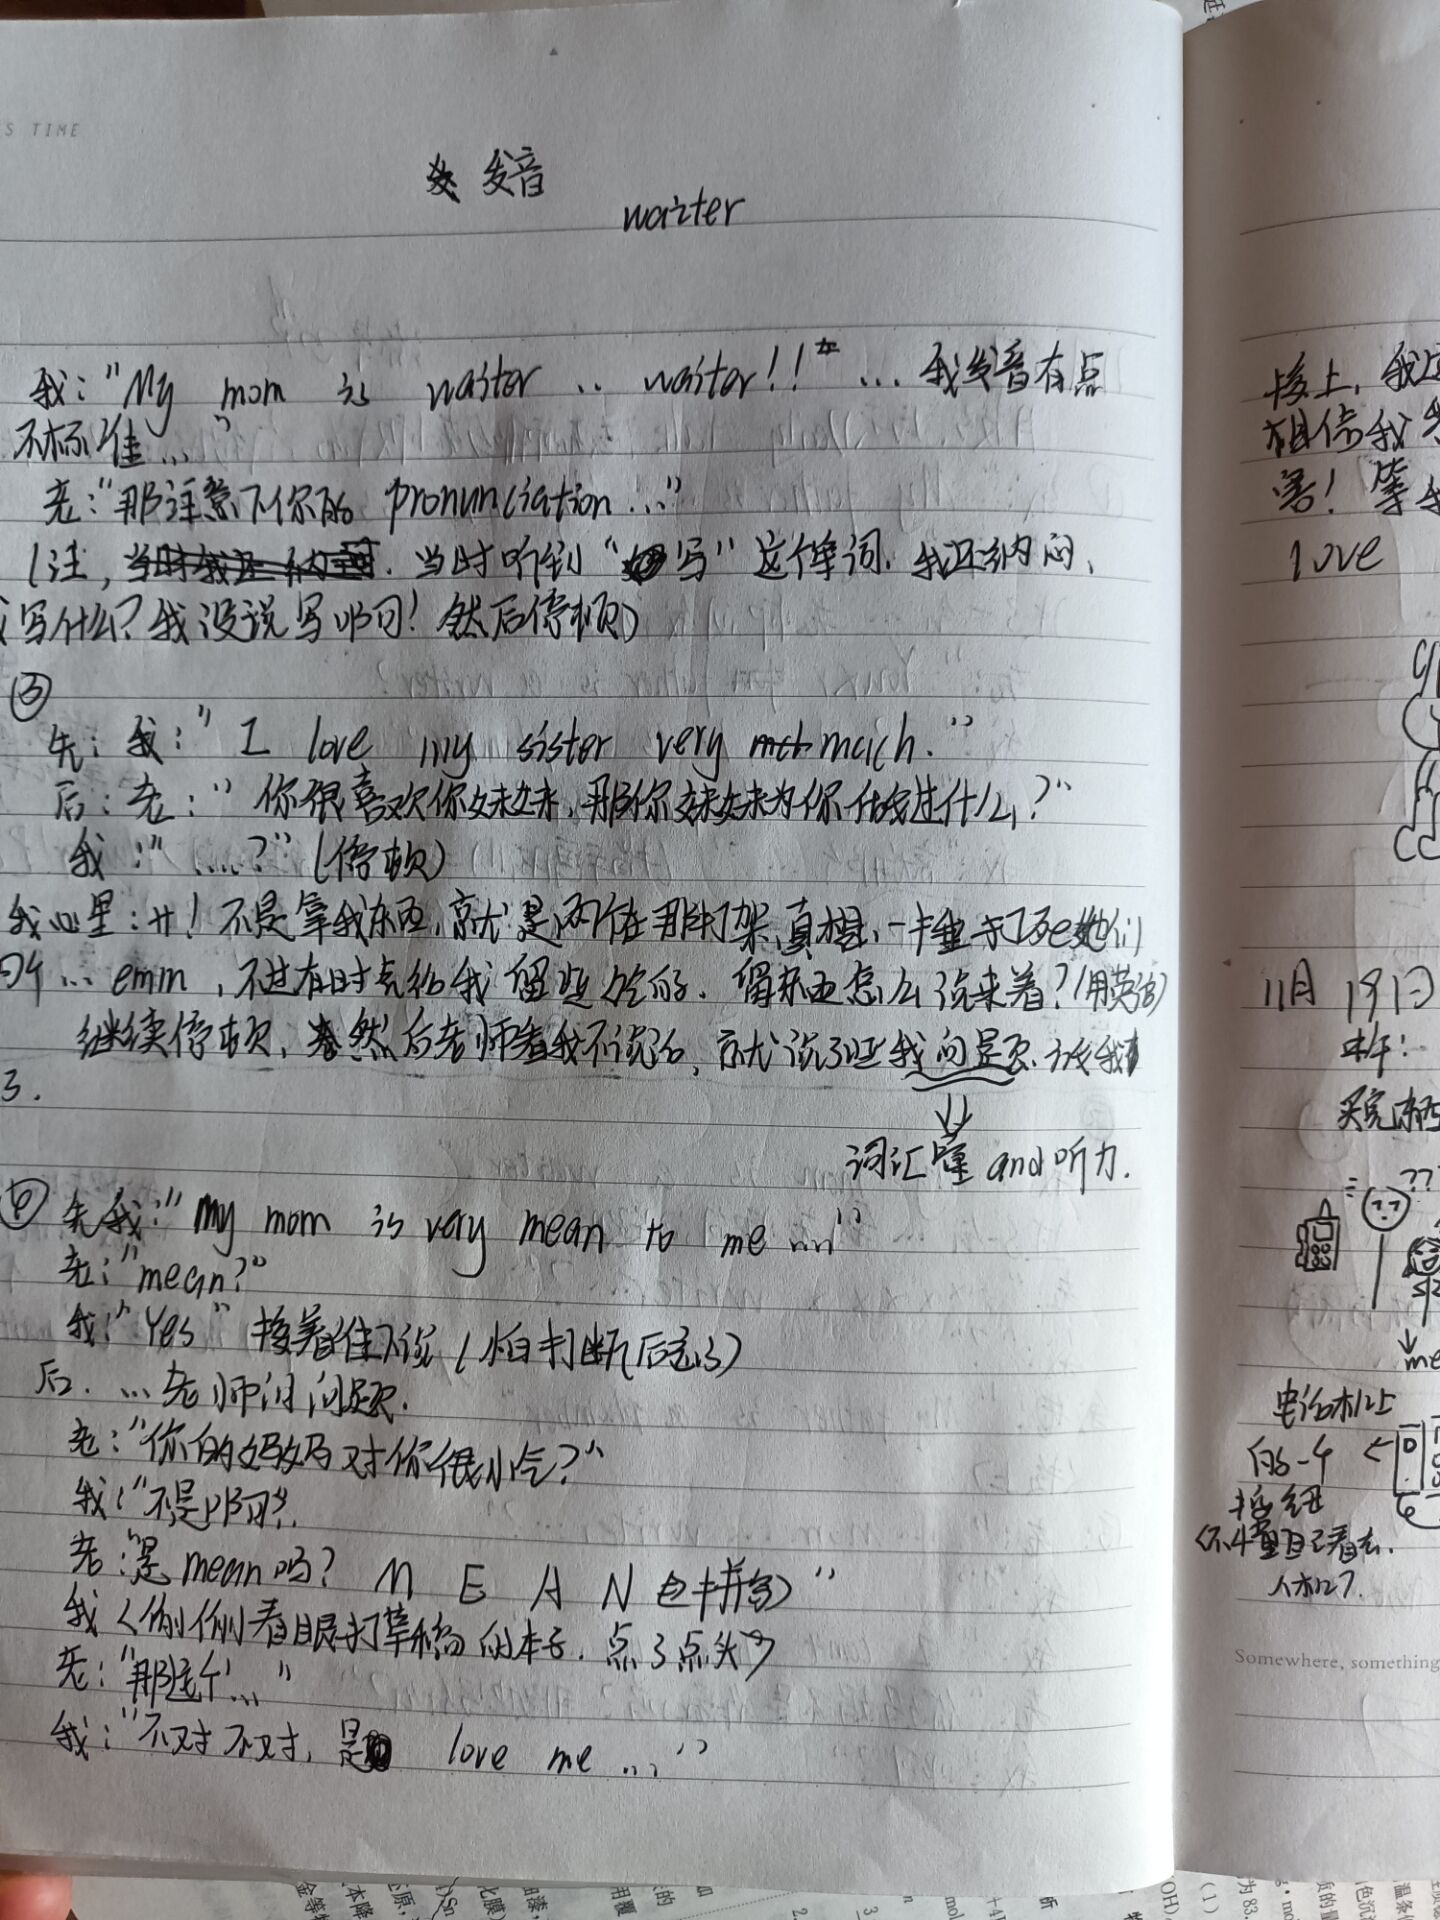 S TIME
发音
waiter
我："My mom is waiter .. waiter!!" ... 我发音有点
不标准..."
老："那注意下你的 pronunciation..."
(注, 当时听到 "写" 这个单词. 我还纳闷,
写什么? 我没说写啊! 然后停顿)
③
先：我："I love my sister very much."
后：老："你很喜欢你妹妹, 那你妹妹为你做过什么?"
我："....?" (停顿)
我心里：艹! 不是拿我东西, 就是两个在那打架, 真想一
... emm, 不过有时点给我留些吃的. 留东西怎么说来着? (用英语)
继续停顿, 然后老师看我不说话, 就说了些我问题.
了.
词汇量 and 听力.
先我："My mom is very mean to me ....."
老："mean?"
我："Yes" 接着往下说 (怕打断后忘了)
后. ...老师问问题.
老："你的妈妈对你很小气?"
我："不是啊".
老："是 mean 吗? M E A N (拼写)"
我 (偷偷看眼打草稿的本子. 点了点头)
老："那这个..."
我："不对不对, 是 love me ..."
接上, 我
相信我
害! 等
love
11月19日
中午:
买完东西
???
me
电话机上
的一个
按钮
(不懂自己看去.
Somewhere, something